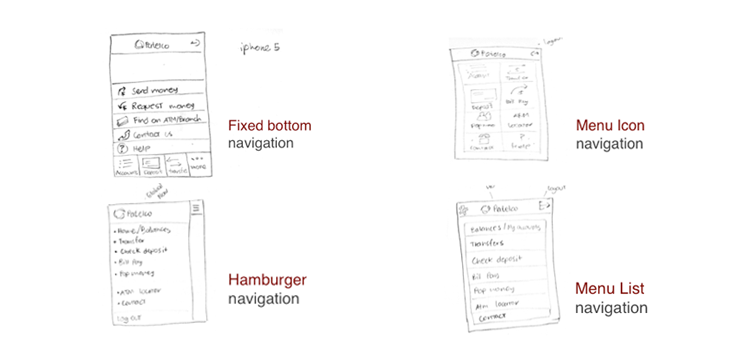 Patelco
iphone 5
Send money
Request money
Find an ATM/Branch
Contact Us
Help
Accounts
Deposit
Transfer
more
Fixed bottom
navigation
logout
Patelco
Accounts
Transfer
Deposit
Bill Pay
Pop money
Locations
Menu Icon
navigation
Patelco
• Home/Balances
• Transfer
• Check deposit
• Bill Pay
• Pop money
• ATM locator
• Contact
Log out
Hamburger
navigation
logout
Patelco
Balances / My accounts
Transfers
Check deposit
Bill Pay
Pop money
Atm locator
Contact
Menu List
navigation